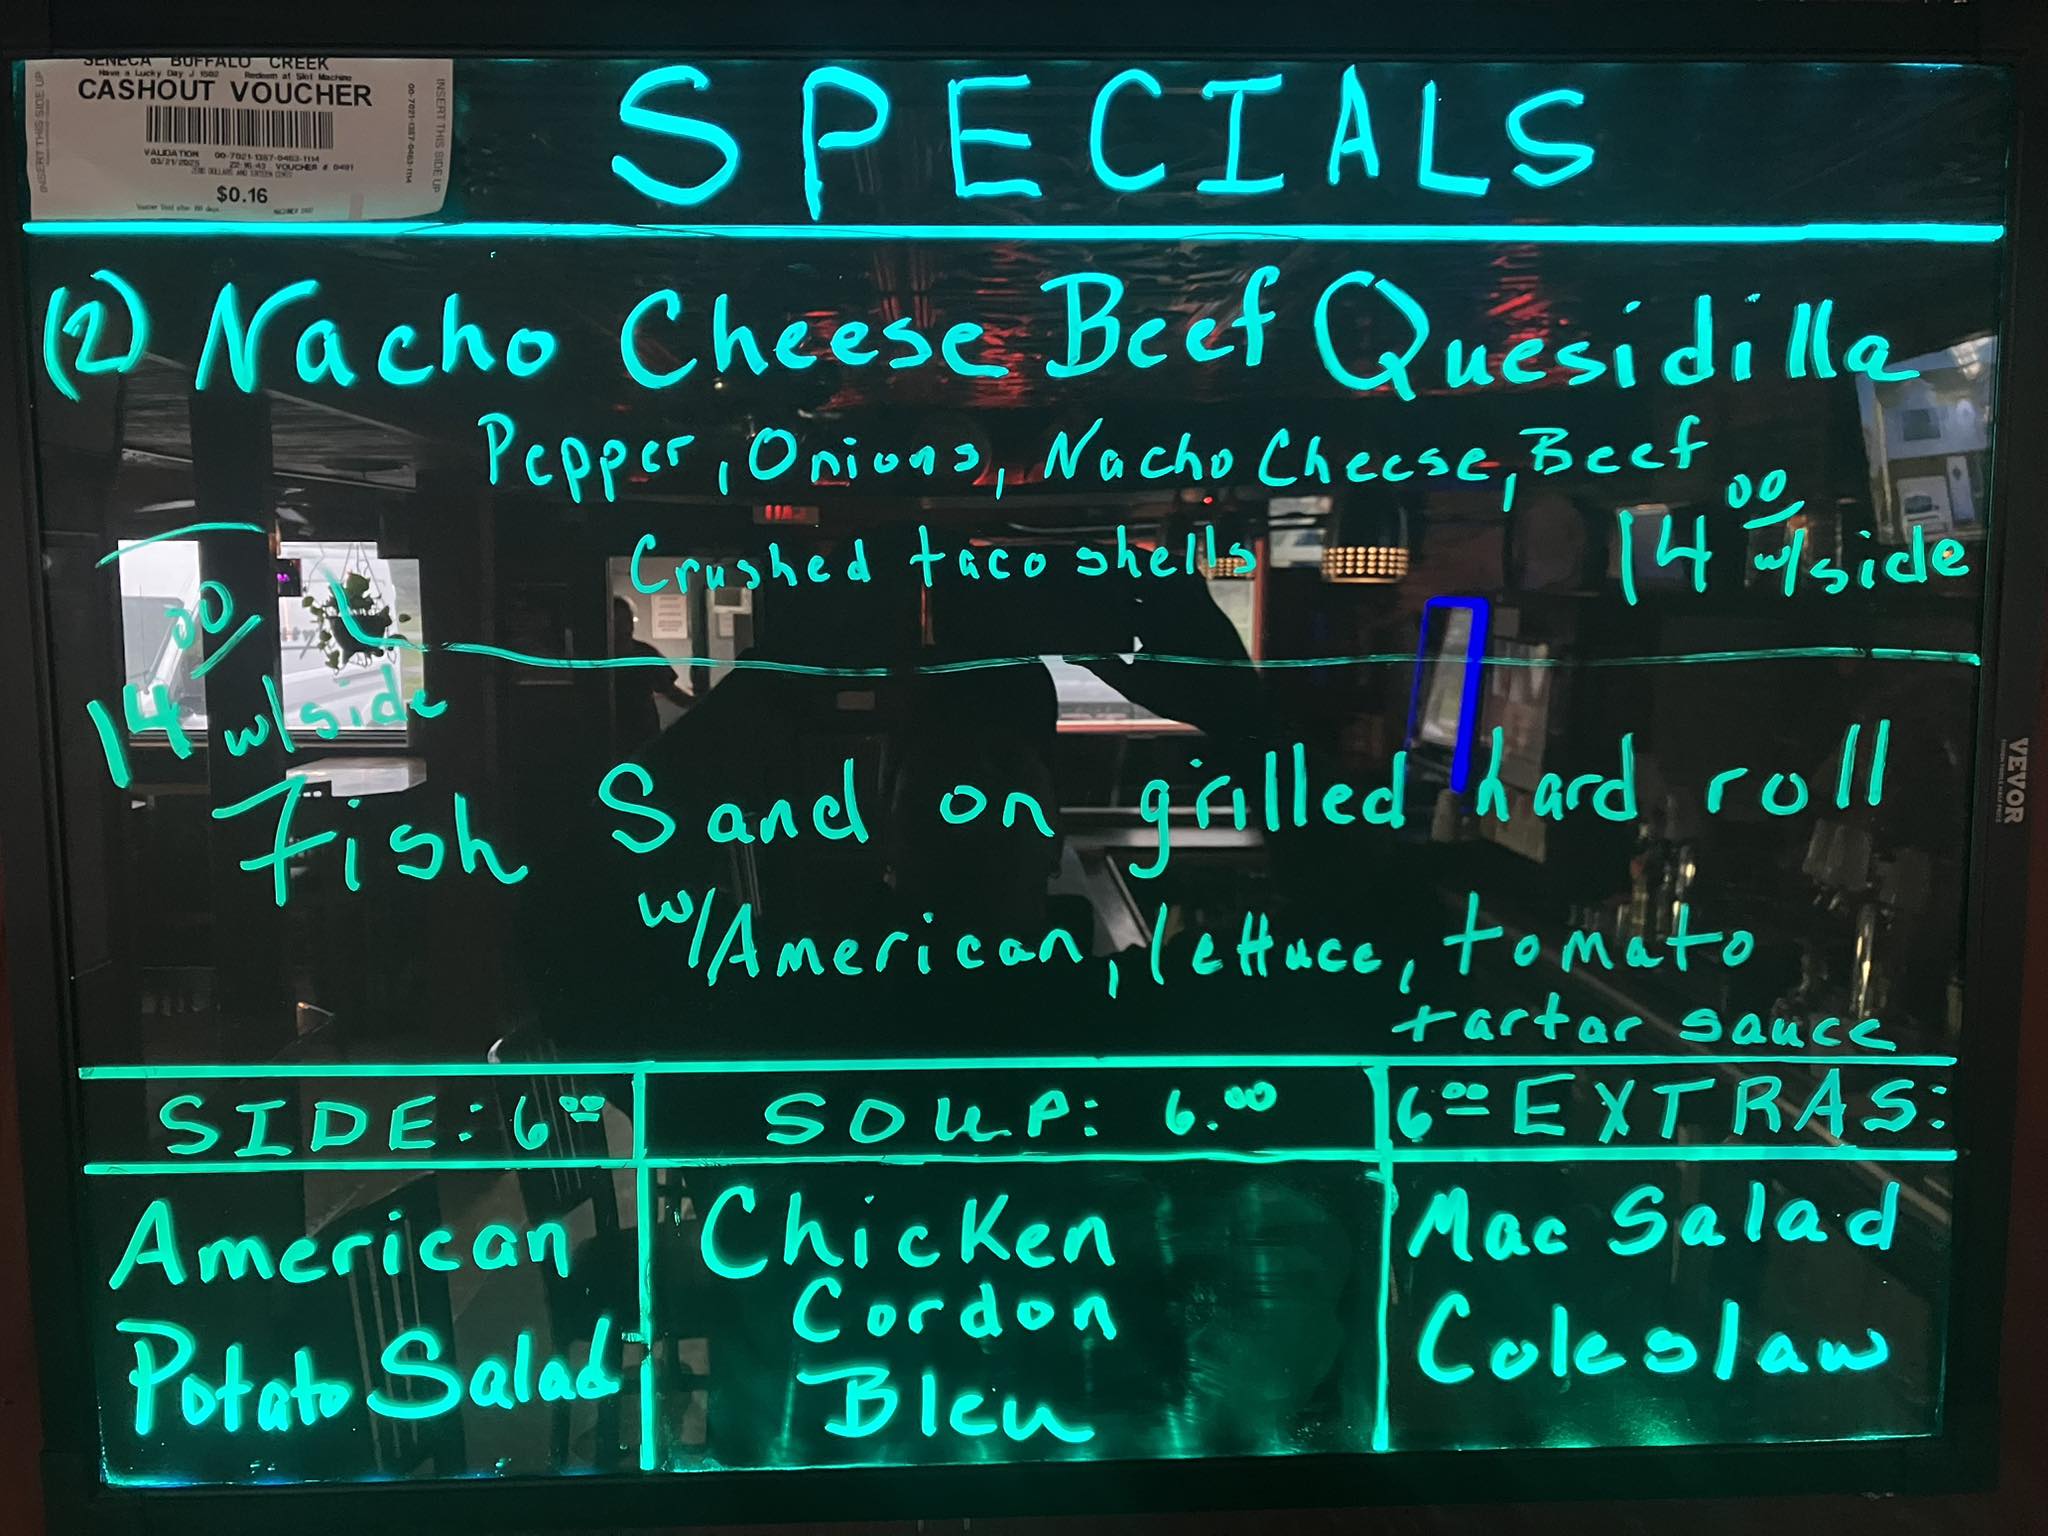 SENECA BUFFALO CREEK
Have a Lucky Day J 1502 Redeem at Slot Machine
CASHOUT VOUCHER
INSERT THIS SIDE UP
INSERT THIS SIDE UP
00-7021-1387-0463-1114
VALIDATION 00-7021-1387-0463-1114
03/21/2025 22:16:43 VOUCHER # 0491
ZERO DOLLARS AND SIXTEEN CENTS
$0.16
SPECIALS
(2) Nacho Cheese Beef Quesidilla
Pepper, Onions, Nacho Cheese, Beef
Crushed taco shells
14 00 w/side
14 00 w/side
Fish Sand on grilled hard roll
w/American, lettuce, tomato
tartar sauce
SIDE: 6 00
American
Potato Salad
SOUP: 6.00
Chicken
Cordon
Bleu
6 00 EXTRAS:
Mac Salad
Coleslaw
VEVOR